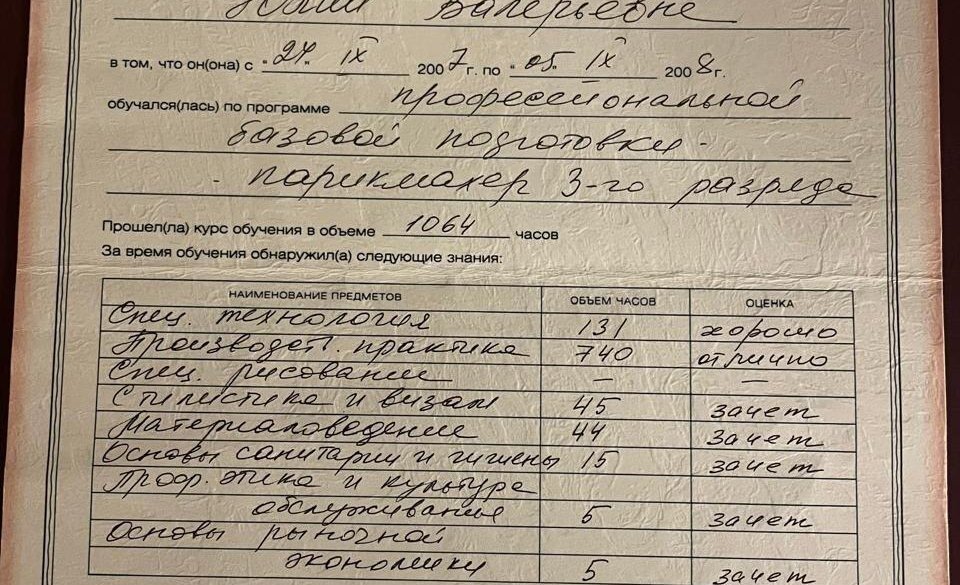 Юлии Валерьевне
в том, что он(она) с "24" IX 2007 г. по "05" IX 2008 г.
обучался(лась) по программе профессиональной
базовой подготовки -
- парикмахер 3-го разряда
Прошел(ла) курс обучения в объеме 1064 часов
За время обучения обнаружил(а) следующие знания:
НАИМЕНОВАНИЕ ПРЕДМЕТОВ ОБЪЕМ ЧАСОВ ОЦЕНКА
Спец. технология 131 хорошо
Производст. практика 740 отлично
Спец. рисование — —
Стилистика и визаж 45 зачет
Материаловедение 44 зачет
Основы санитарии и гигиены 15 зачет
Проф. этика и культура
обслуживанья 5 зачет
Основы рыночной
экономики 5 зачет